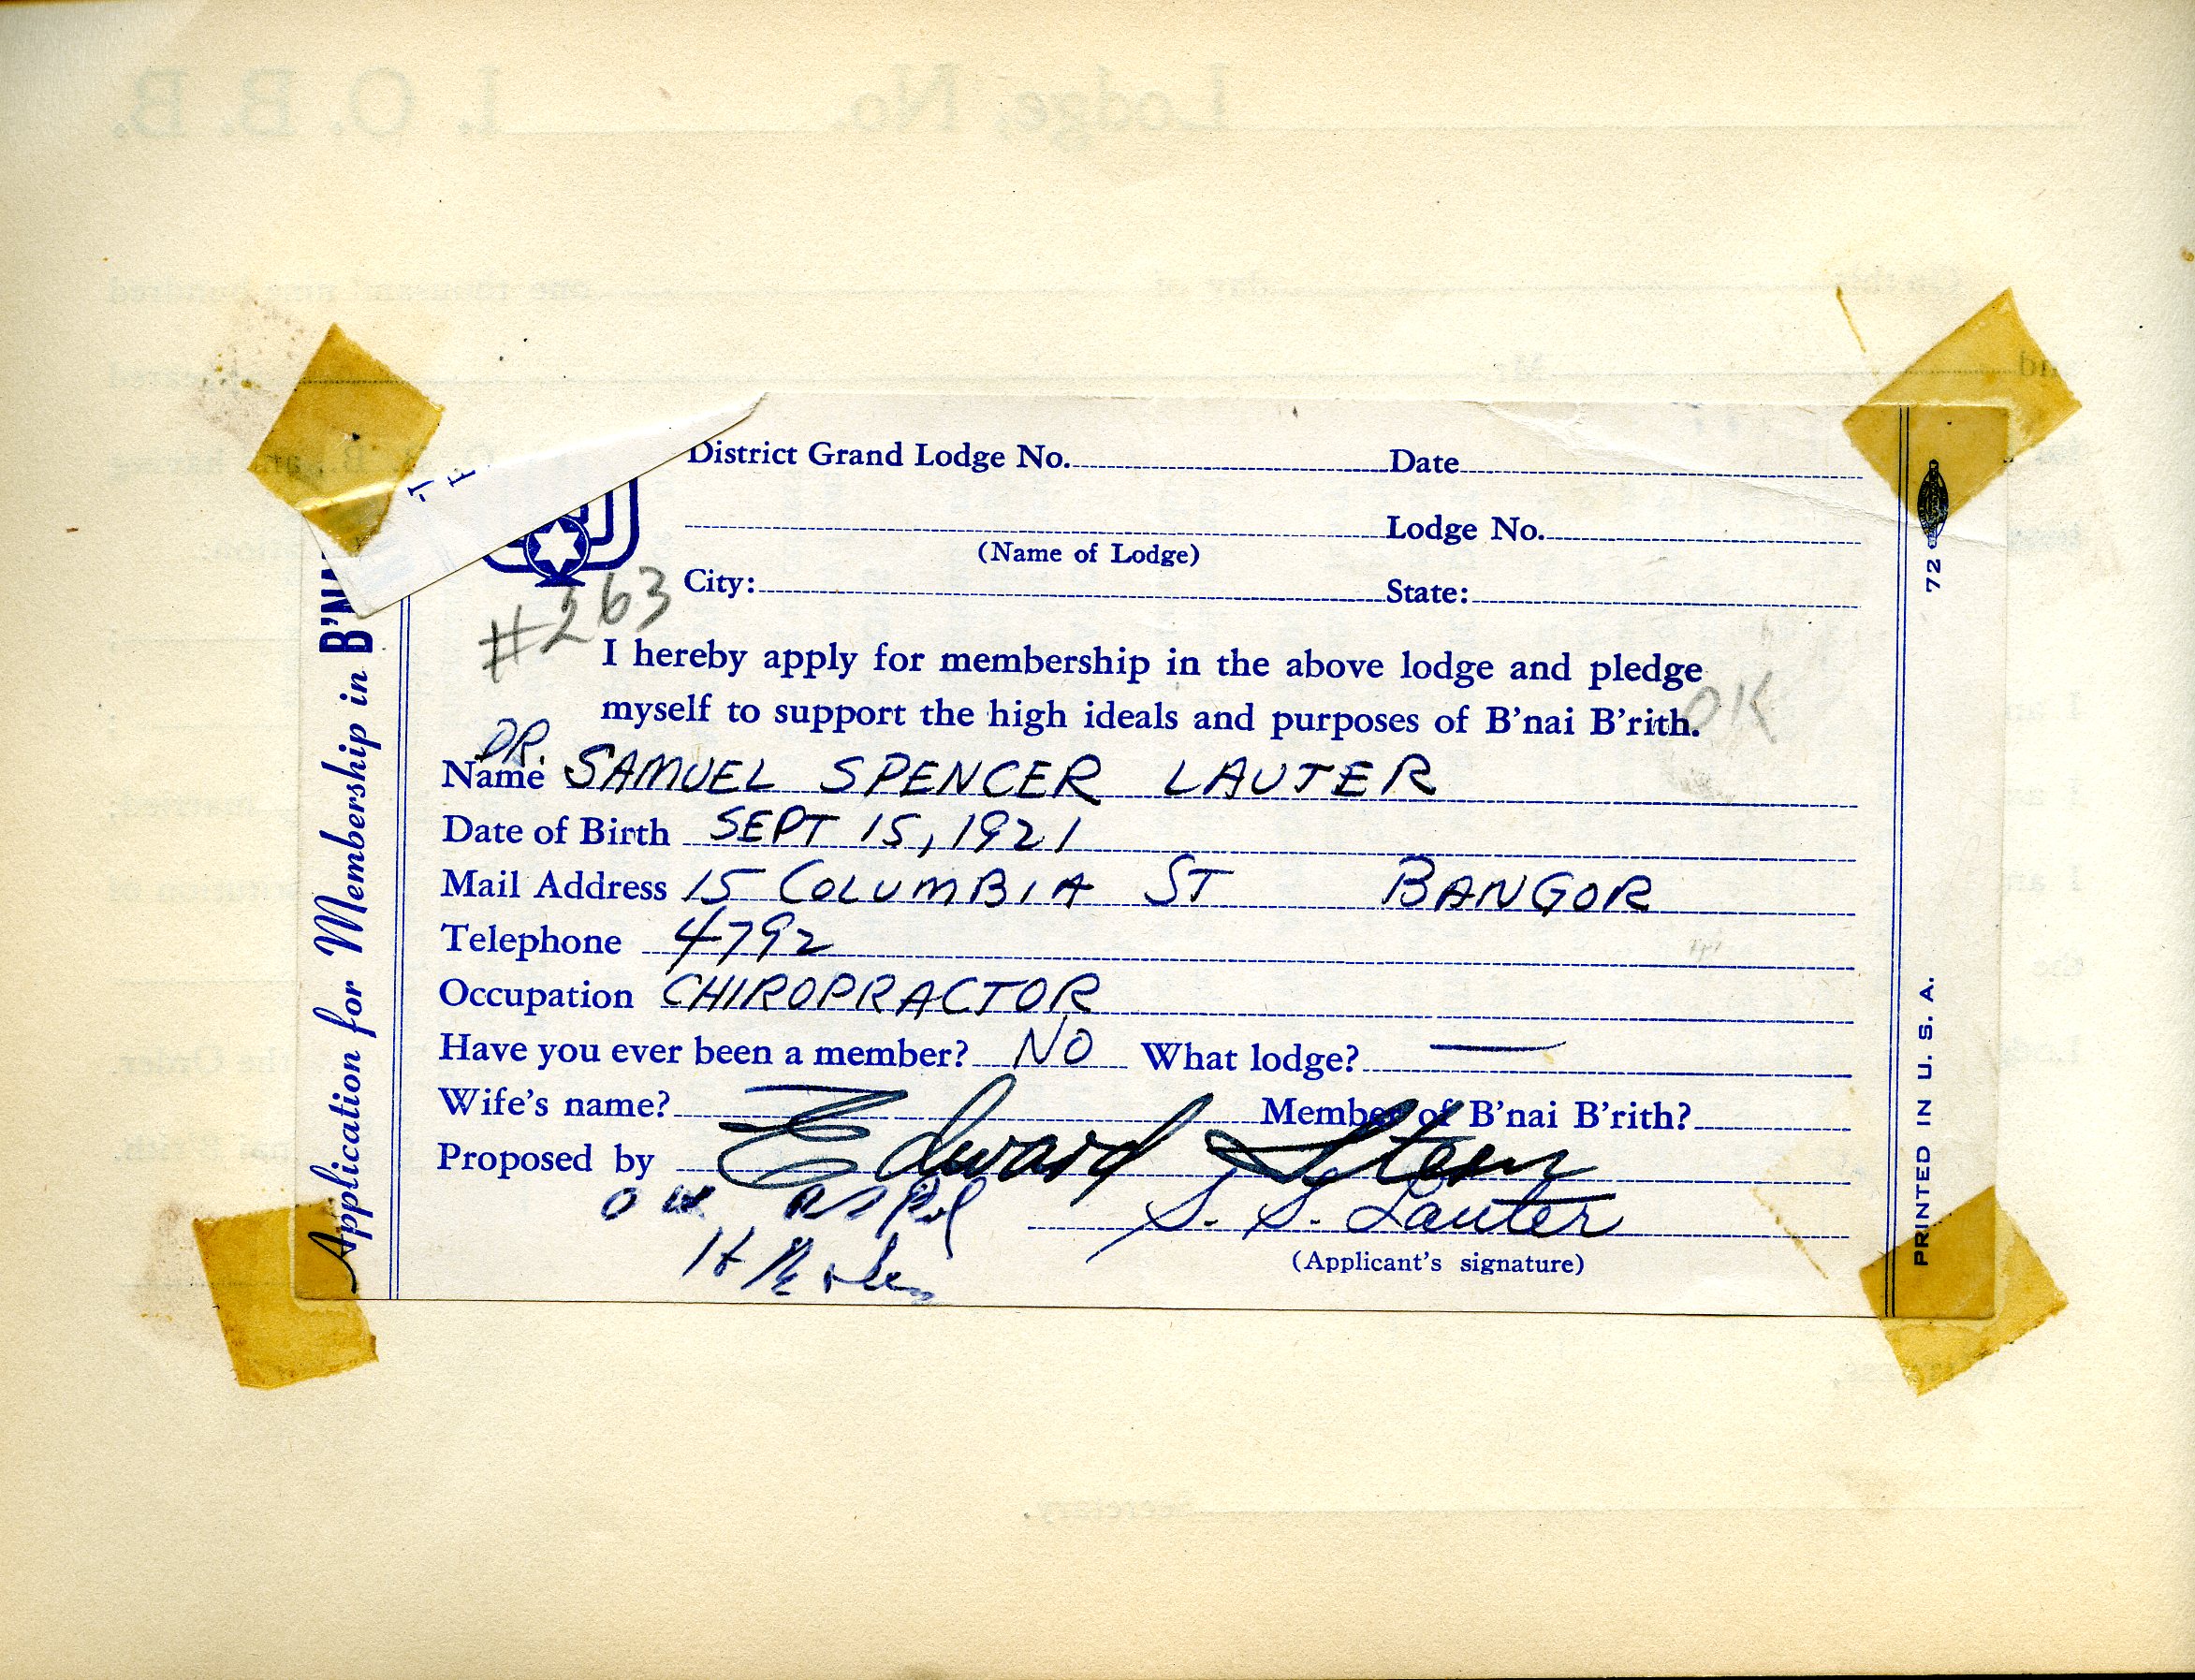 District Grand Lodge No. Date
Lodge No.
(Name of Lodge)
City: State:
#263
I hereby apply for membership in the above lodge and pledge
myself to support the high ideals and purposes of B'nai B'rith.
OK
DR.
Name SAMUEL SPENCER LAUTER
Date of Birth SEPT 15, 1921
Mail Address 15 COLUMBIA ST BANGOR
Telephone 4792
Occupation CHIROPRACTOR
Have you ever been a member? NO What lodge? —
Wife's name? Member of B'nai B'rith?
Proposed by Edward Stern
S. S. Lauter
(Applicant's signature)
Application for Membership in B'N
72
PRINTED IN U. S. A.
Lodge, No. I. O. B. B.
Secretary.